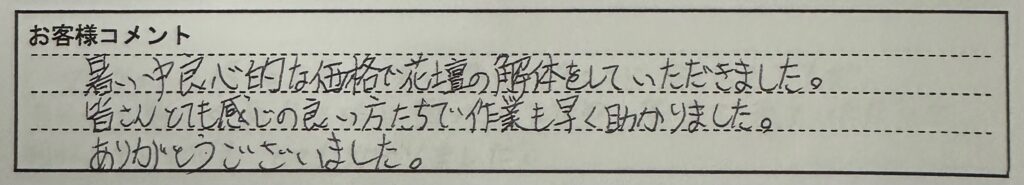 お客様コメント
暑い中良心的な価格で花壇の解体をしていただきました。
皆さんとても感じの良い方たちで作業も早く助かりました。
ありがとうございました。